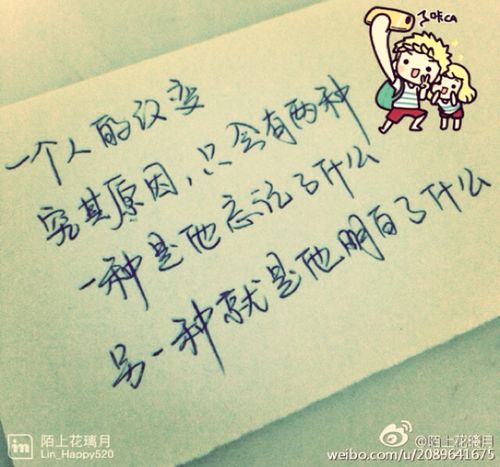 一个人的改变
究其原因,只会有两种
一种是他忘记了什么
另一种就是他明白了什么
in 陌上花璃月
Lin_Happy520
@陌上花璃月
weibo.com/u/2089641675